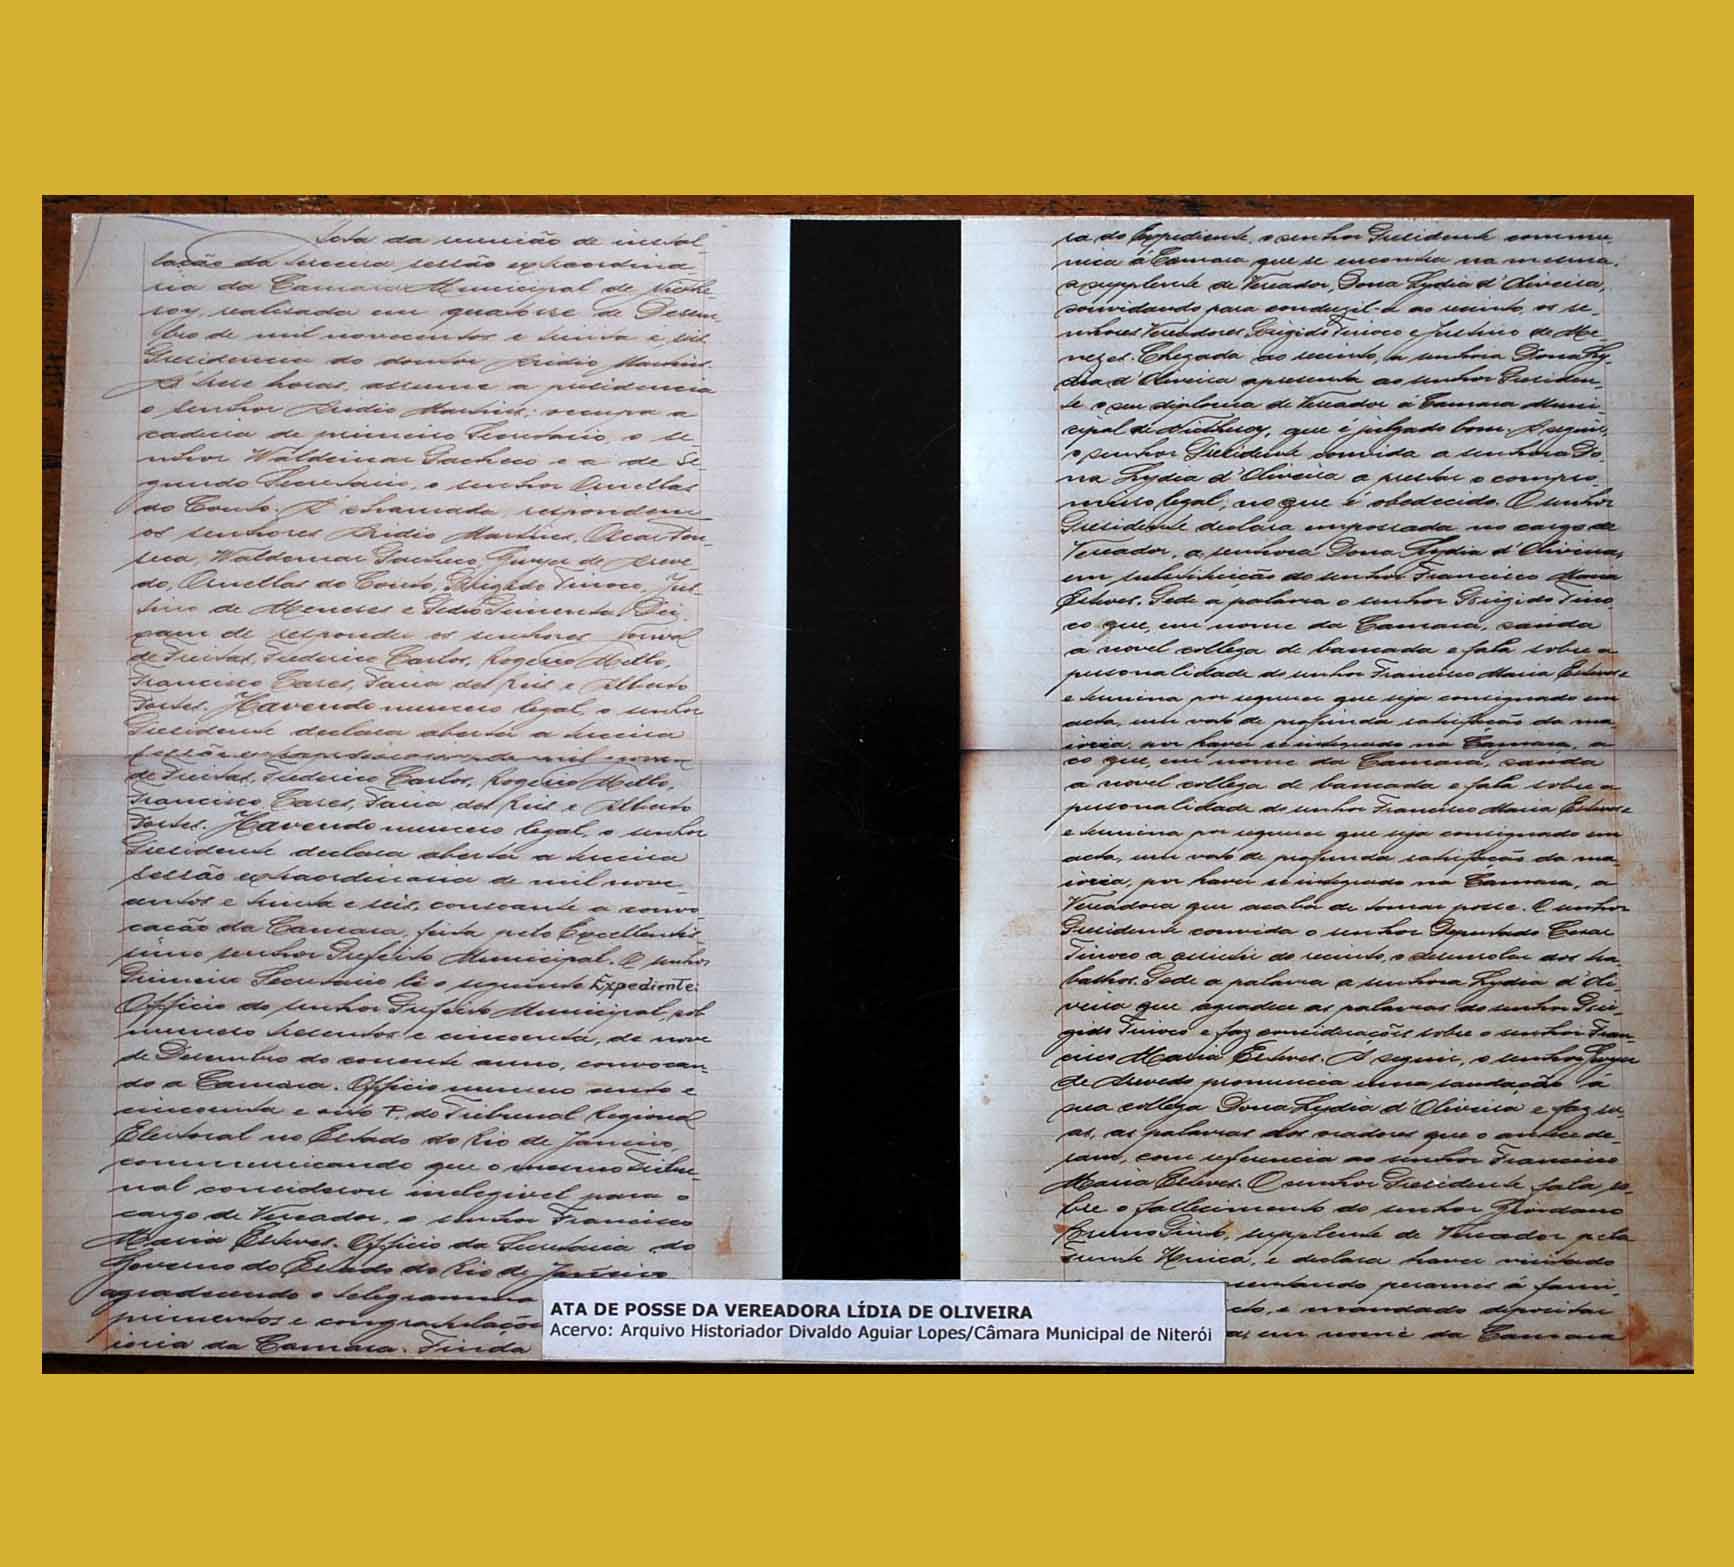 Acta da reunião de instal-
lação da terceira sessão extraordina-
ria da Camara Municipal de Nicthe-
roy, realisada em quatorse de Desem-
bro de mil novecentos e trinta e seis.
Presidencia do doutor Aridio Martins.
Á's trese horas, assume a presidencia
o senhor Aridio Martins; occupa a
cadeira de primeiro Secretario, o se-
nhor Waldemar Pacheco e a de Se-
gundo Secretario, o senhor Ornellas
do Couto. Á chamada, respondem
os senhores Aridio Martins, Oscar Fon-
seca, Waldemar Pacheco, Gwyer de Azeve-
do, Ornellas do Couto, Brigido Tinoco, Jus-
tino de Meneses e Pedro Pimenta. Dei-
xam de responder os senhores Torval
de Freitas, Frederico Carlos, Rogerio Mello,
Francisco Cares, Faria dos Reis e Alberto
Fortes. Havendo numero legal, o senhor
Presidente declara aberta a terceira
sessão extraordinaria de mil nove
de Freitas, Frederico Carlos, Rogerio Mello,
Francisco Cares, Faria dos Reis e Alberto
Fortes. Havendo numero legal, o senhor
Presidente declara aberta a terceira
sessão extraordinaria de mil nove-
centos e trinta e seis, consoante a convo-
cação da Camara, feita pelo Excellentis-
simo senhor Prefeito Municipal. O senhor
Primeiro Secretario lê o seguinte Expediente:
Officio do senhor Prefeito Municipal, sob
numero tresentos e cincoenta, de nove
de Desembro do corrente anno, convocan-
do a Camara. Officio numero cento e
cincoenta e oito P, do Tribunal Regional
Eleitoral no Estado do Rio de Janeiro,
communicando que o mesmo Tribu-
nal considerou inelegivel para o
cargo de Vereador, o senhor Francisco
Maria Esteves. Officio da Secretaria do
Governo do Estado do Rio de Janeiro
agradecendo o telegramma
primentos e congratulaçõe
ioria da Camara. Finda
ra do Expediente, o senhor Presidente commu-
nica á Camara que se encontra na mesma,
a supplente de Vereador, Dona Lydia d'Oliveira,
convidando para conduzil-a ao recinto, os se-
nhores Vereadores Brigido Tinoco e Justino de Me-
nezes. Chegada ao recinto, a senhora Dona Ly-
dia d'Oliveira apresenta ao senhor Presiden-
te o seu diploma de Vereador á Camara Muni-
cipal de Nictheroy, que é julgado bom. A seguir,
o senhor Presidente convida a senhora Do-
na Lydia d'Oliveira a prestar o compro-
misso legal, no que é obedecido. O senhor
Presidente declara empossada no cargo de
Vereador, a senhora Dona Lydia d'Oliveira,
em substituição do senhor Francisco Maria
Esteves. Pede a palavra o senhor Brigido Tino-
co que, em nome da Camara, sauda
a novel collega de bancada e fala sobre a
personalidade do senhor Francisco Maria Esteves e
e termina por requerer que seja consignado em
acta, um voto de profunda satisfação da ma-
ioria, por haver se integrado na Camara, a
co que, em nome da Camara, sauda
a novel collega de bancada e fala sobre a
personalidade do senhor Francisco Maria Esteves e
e termina por requerer que seja consignado em
acta, um voto de profunda satisfação da ma-
ioria, por haver se integrado na Camara, a
Vereadora que acaba de tomar posse. O senhor
Presidente convida o senhor Deputado Cesar
Tinoco a assistir do recinto, o desenrolar dos tra-
balhos. Pede a palavra a senhora Lydia d'Oli-
veira que agradece as palavras do senhor Bri-
gido Tinoco e faz considerações sobre o senhor Fran-
cisco Maria Esteves. A seguir, o senhor Gwyer
de Azevedo pronuncia uma saudação á
sua collega Dona Lydia d'Oliveira e faz su-
as, as palavras dos oradores que o antece-de-
ram, com referencia ao senhor Francisco
Maria Esteves. O senhor Presidente fala so-
bre o fallecimento do senhor Giordano
Bruno Pinto, supplente de Vereador pela
Frente Unica, e declara haver visitado
sentando pesames á fami-
cto, e mandado depositar
em nome da Camara
ATA DE POSSE DA VEREADORA LÍDIA DE OLIVEIRA
Acervo: Arquivo Historiador Divaldo Aguiar Lopes/Câmara Municipal de Niterói